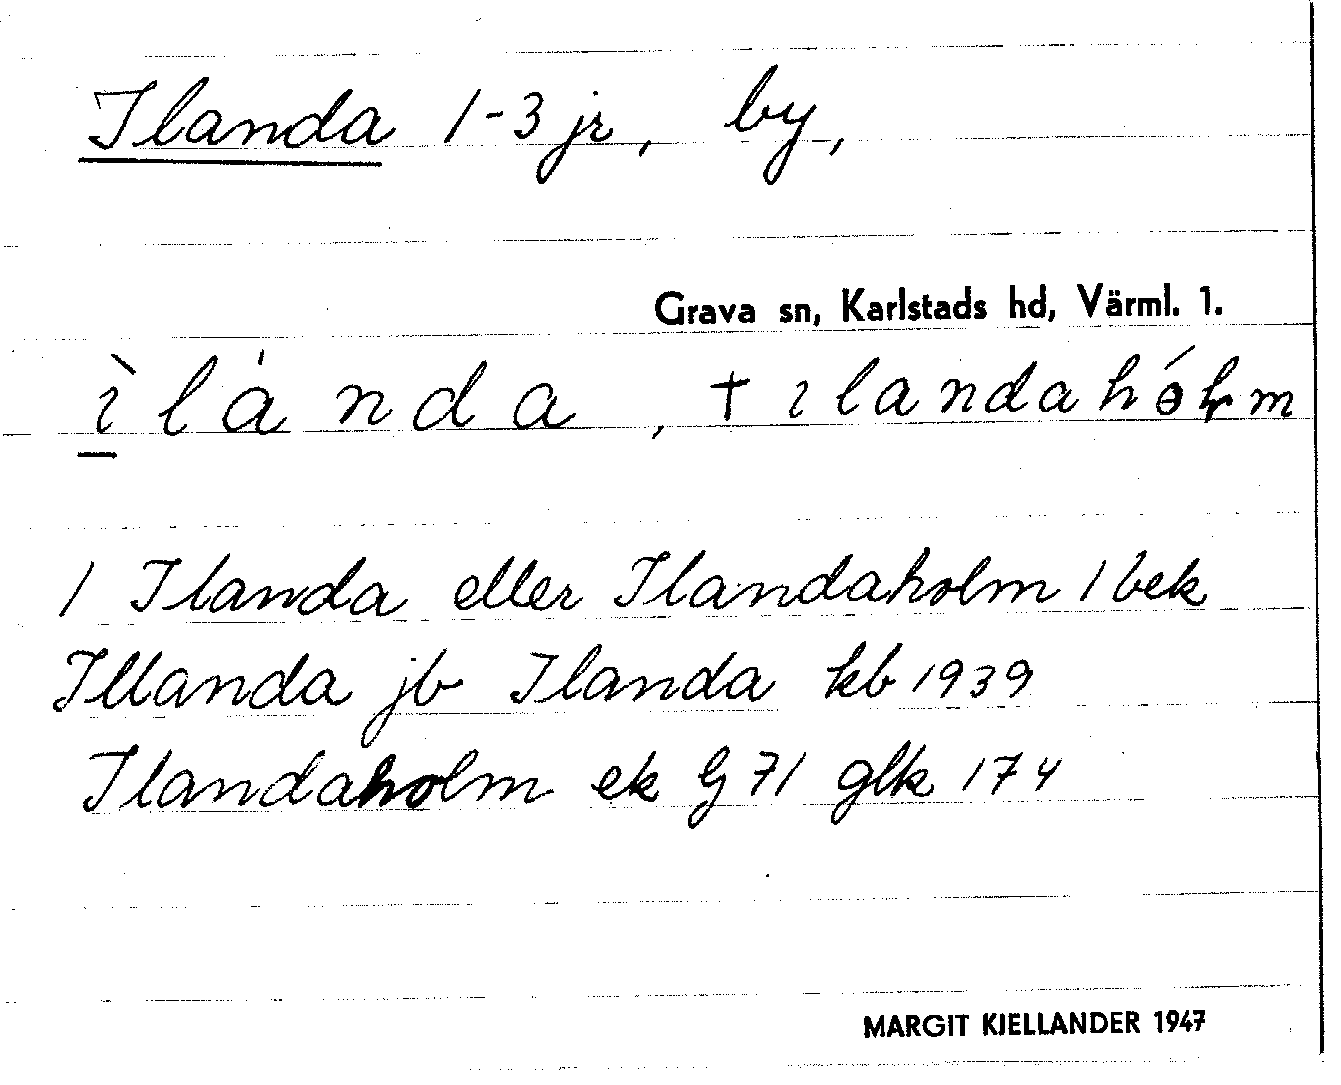 Ilanda 1-3 jr, by,
Grava sn, Karlstads hd, Värml. 1.
ìlánda, † ılandahólm
1 Ilanda eller Ilandaholm 1 bek
Illanda jb Ilanda kb 1939
Ilandaholm ek G 71 glk 174
MARGIT KJELLANDER 1947